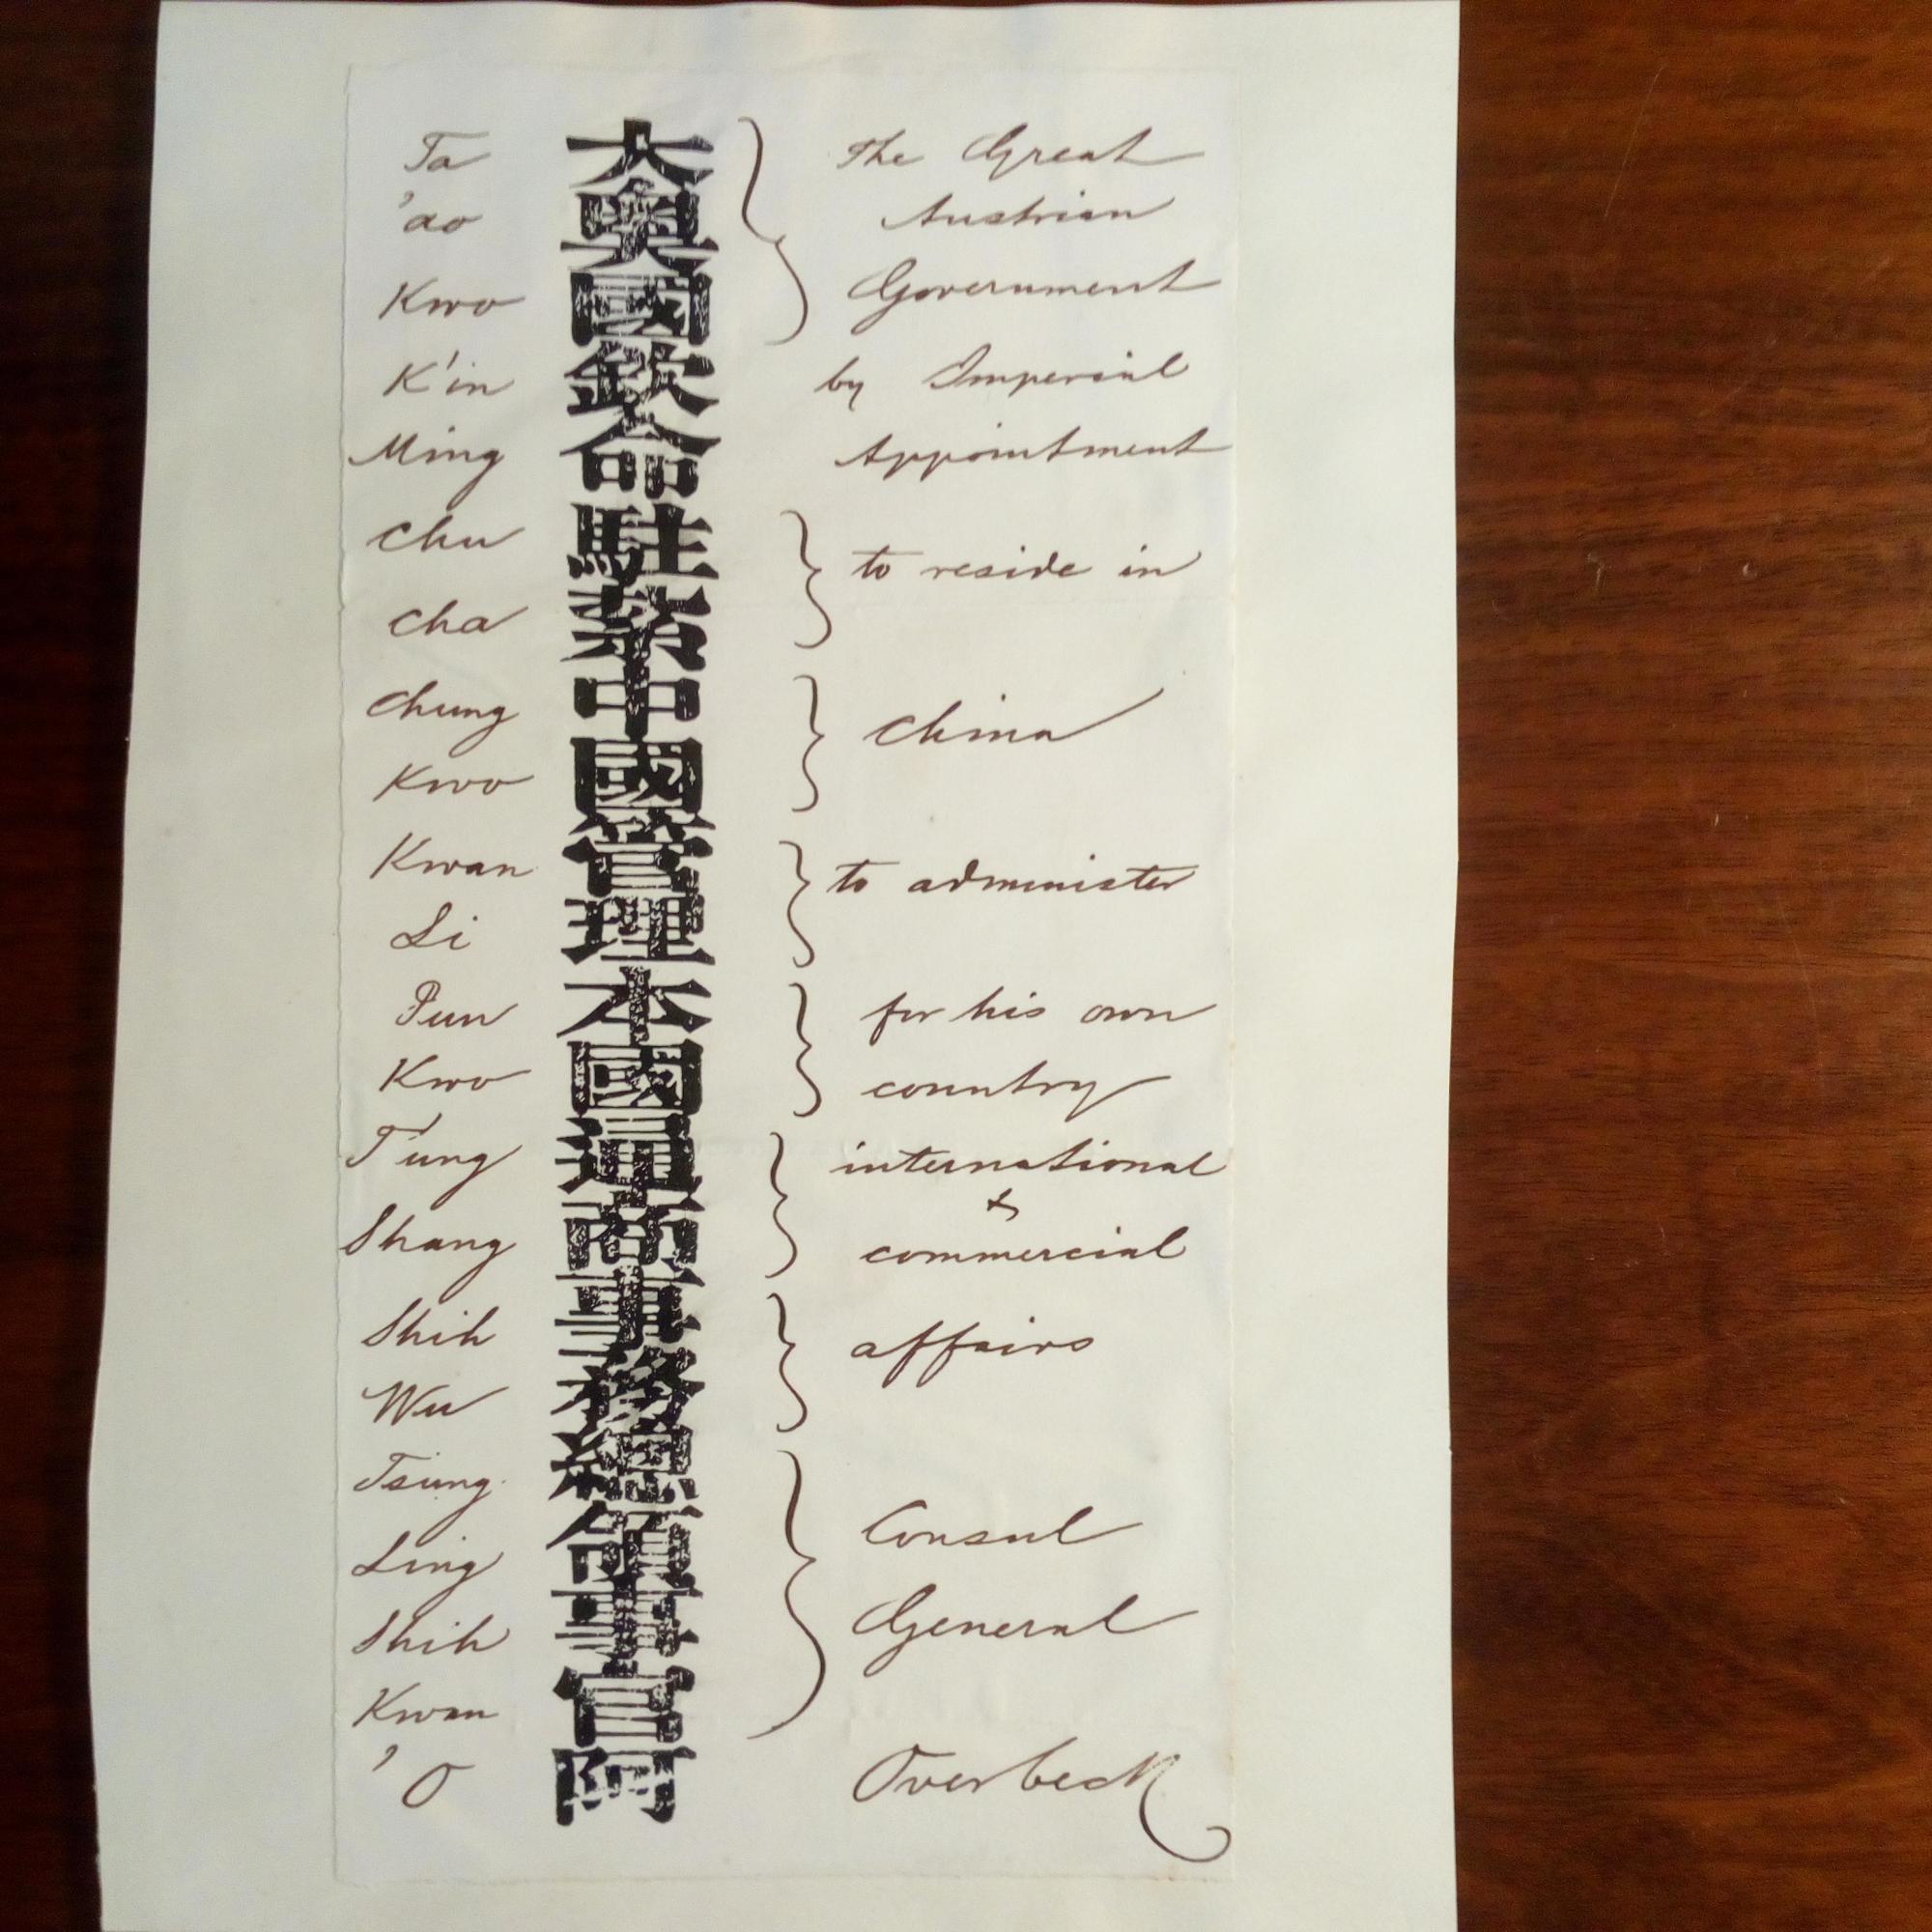 Ta
'ao
Kwo
K'in
Ming
Chu
Cha
Chung
Kwo
Kwan
Li
Pun
Kwo
T'ung
Shang
Shih
Wu
Tsung
Ling
Shih
Kwan
'O
大奧國欽命駐紮中國管理本國通商事務總領事官阿
The Great
Austrian
Government
by Imperial
Appointment
to reside in
China
to administer
for his own
country
international
&
commercial
affairs
Consul
General
Overbeck